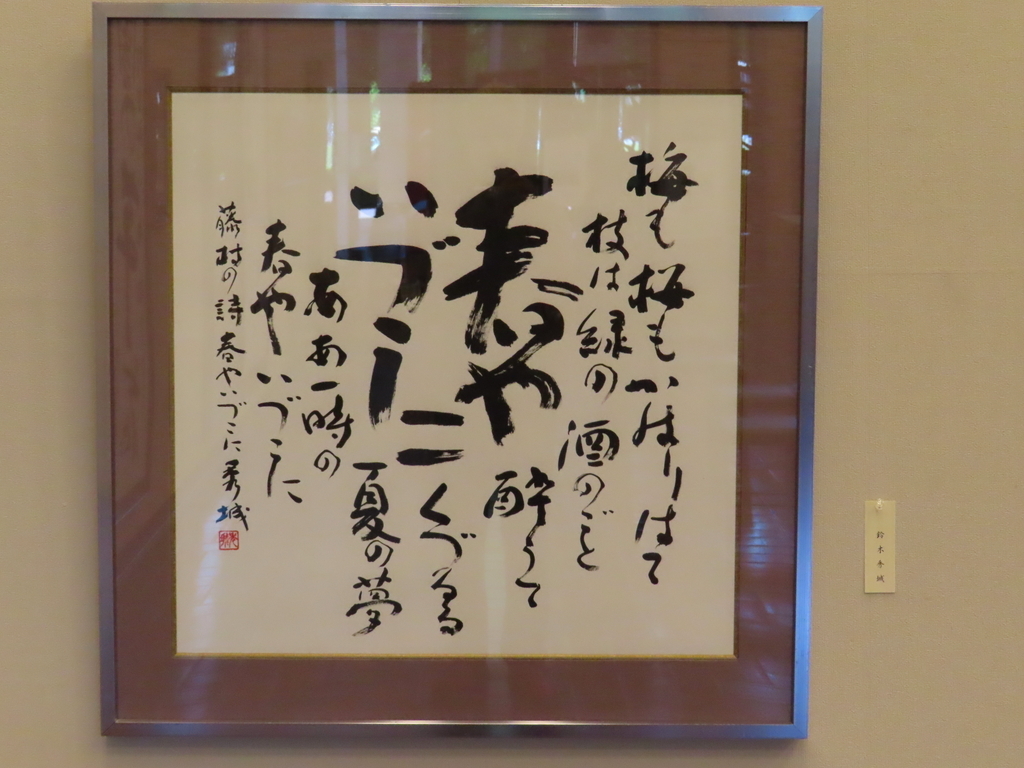 梅も桜もかはりはて
枝は緑の酒のごと
酔うて
春や
いづこに
くづるる
夏の夢
ああ一時の
春やいづこに
藤村の詩 春やいづこに 秀城
鈴木秀城